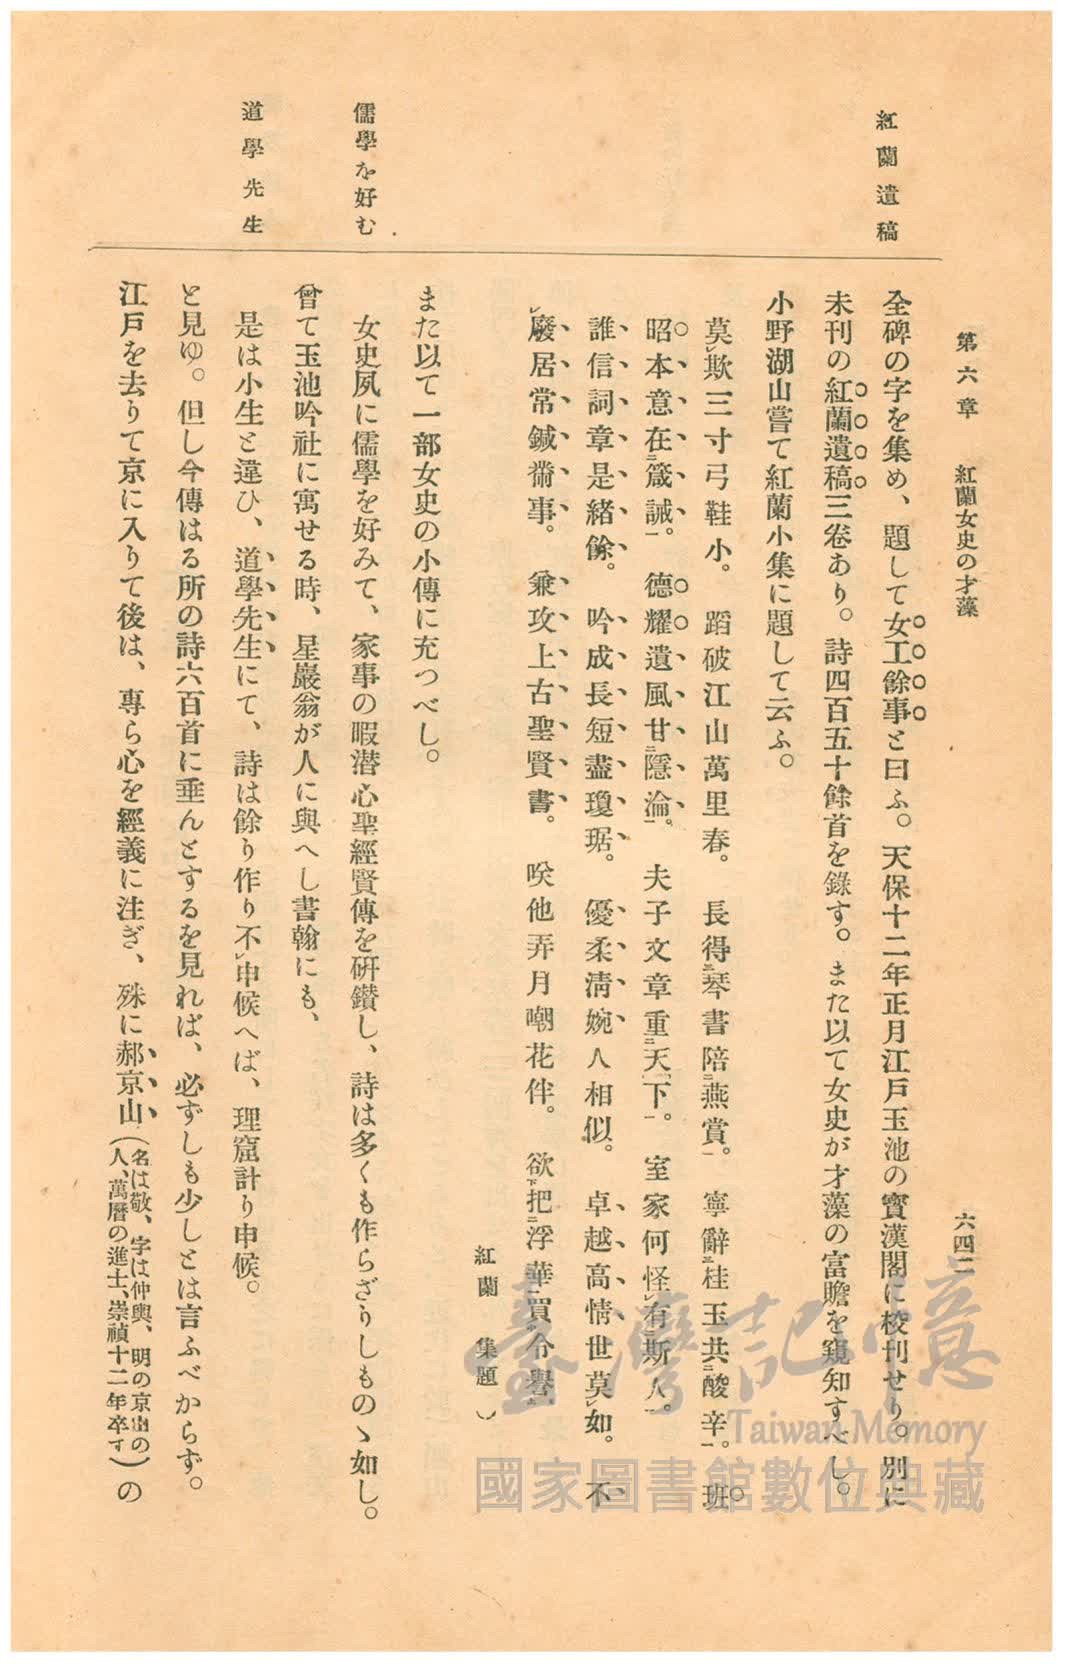 第六章　紅蘭女史の才藻　六四二
紅蘭遺稿
儒學を好む
道學先生
全碑の字を集め、題して女工餘事と曰ふ。天保十二年正月江戸玉池の寶漢閣に校刊せり。別に
未刊の紅蘭遺稿三卷あり。詩四百五十餘首を錄す。また以て女史が才藻の富贍を窺知すべし。
小野湖山嘗て紅蘭小集に題して云ふ。
莫レ欺三寸弓鞋小。蹈破江山萬里春。長得二琴書陪一燕賞。寧辭桂玉共二酸辛一。班
昭本意在二箴誡一。德耀遺風甘二隱淪一。夫子文章重二天下一。室家何怪レ有二斯人一。
誰信詞章是緒餘。吟成長短盡瓊琚。優柔淸婉人相似。卓越高情世莫レ如。不
レ廢居常鍼黹事。兼攻上古聖賢書。唉他弄月嘲花伴。欲下把二浮華一買中令譽上
紅蘭集題）
また以て一部女史の小傳に充つべし。
女史夙に儒學を好みて、家事の暇潜心聖經賢傳を硏鑚し、詩は多くも作らざりしものゝ如し。
曾て玉池吟社に寓せる時、星巖翁が人に與へし書翰にも、
是は小生と違ひ、道學先生にて、詩は餘り作り不レ申候へば、理窟計り申候。
と見ゆ。但し今傳はる所の詩六百首に垂んとするを見れば、必ずしも少しとは言ふべからず。
江戸を去りて京に入りて後は、專ら心を經義に注ぎ、殊に郝京山（名は敬、字は仲輿、明の京山の人、萬曆の進士、崇禎十二年卒す）の
臺灣記憶
Taiwan Memory
國家圖書館數位典藏